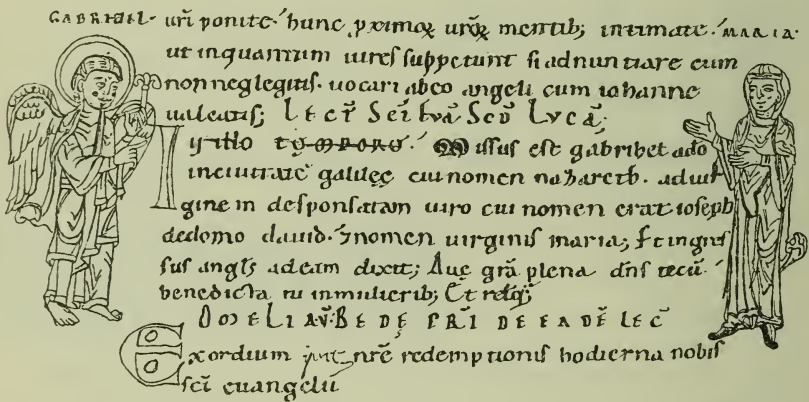 GABRIHEL uri ponite · hunc ꝓximoꝝ urōꝝ mentib; intimate · MARIA
ut inquantum uires suppetunt si adnuntiare eum
non neglegitis · uocari ab eo angeli cum iohanne
ualeatis; LECT̄ SCĪ EVĀ SCD̄ LVCĀ
In illo TEMPORE · Missus est gabrihel ado
inciuitatē galileę cui nomen nazareth · aduir
gine in desponsatam uiro cui nomen erat ioseph
dedomo dauid · ⁊ nomen uirginis maria; Et ingres
sus angl̄s adeam dixit; Aue grā plena dn̄s tecū ·
benedicta tu inmulierib; Et reliq̄;
OOMELIA VĒ BEDĘ PRĪ DE EADĒ LEC̄
Exordium nrē redemptionis hodierna nobis
sc̄i euangelii